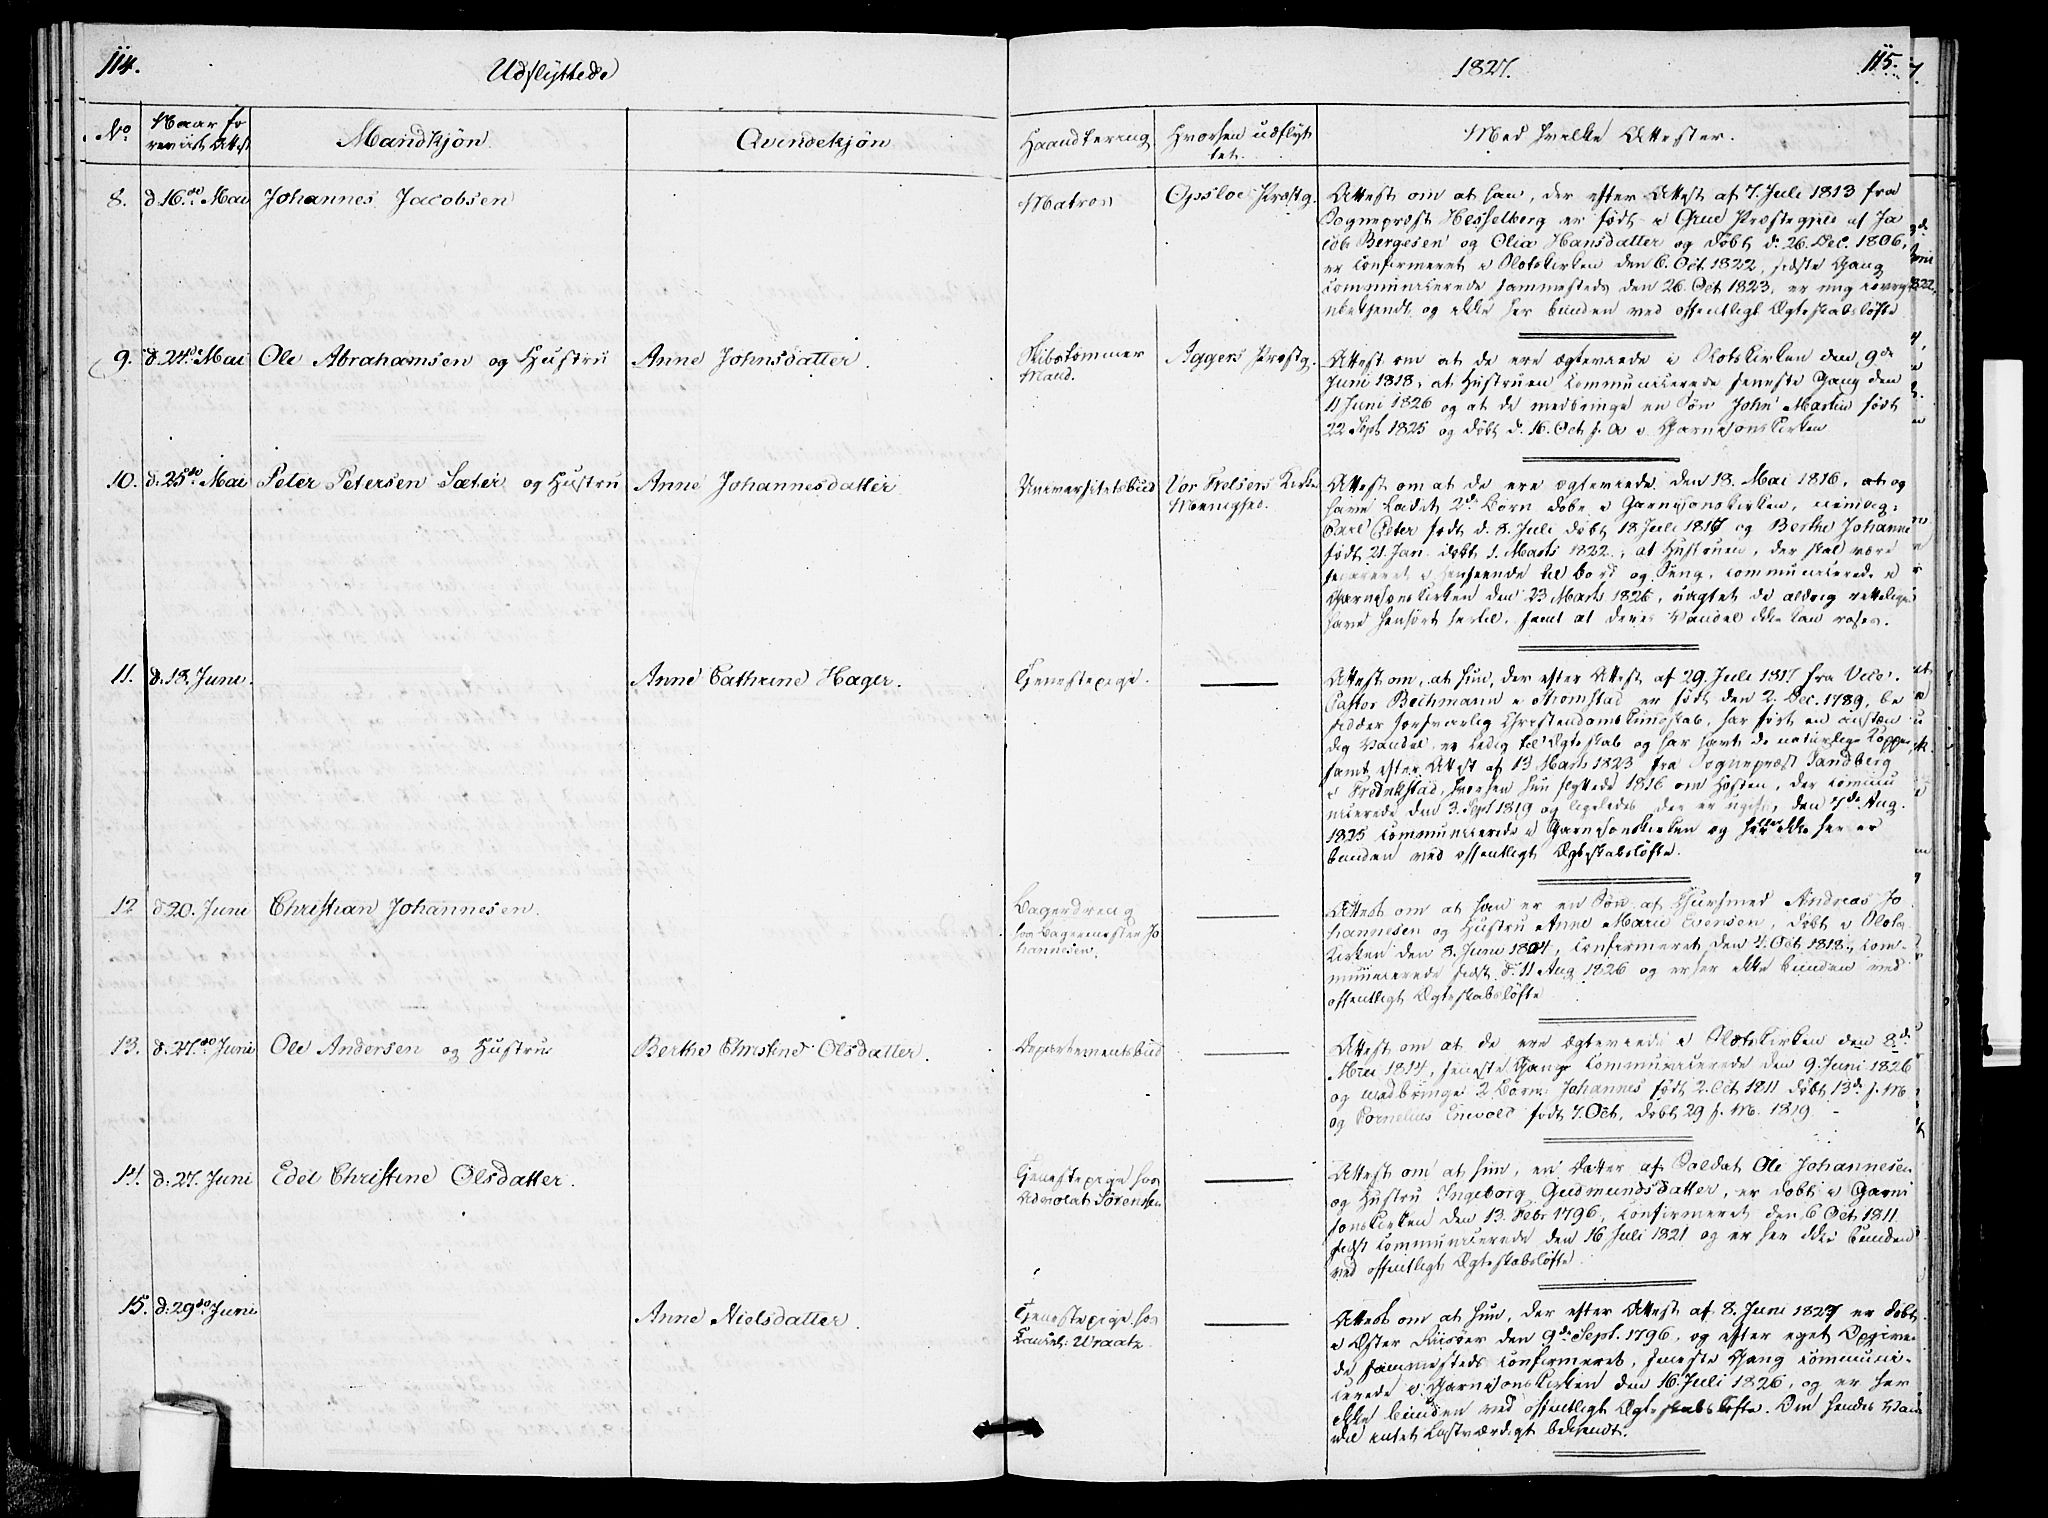 114.
Udflyttede
1827.
115.
No
Naar fo
revist Attest
Mandkjøn
Qvindekjøn
Haandtering
Hvorhen udflyt
tet.
Med hvilke Attester.
8. d. 16de Mai Johannes Jacobsen
Matros
Opsloe Præstg.
Attest om at han, der efter Attest af 7. Juli 1813 fra
Sognepræst Hesselberg er født i Grue Præstegjeld af Ja
cob Bergesen og Olia Hansdatter og døbt d. 26. Dec. 1806,
er confirmeret i Slotskirken den 6. Oct 1822, sidste Gang
communicerede sammesteds den 26. Oct 1823, er mig iøvrigt
ubekjendt, og ikke her bunden ved offentligt Ægteskabsløfte
9. d. 24de Mai Ole Abrahamsen og Hustru
Anne Johnsdatter.
Skibstømmer
Mand.
Aggers Præstg.
Attest om at de ere ægteviede i Slotskirken den 9de
Juni 1818, at Hustruen communicerede seneste Gang den
11 Juni 1826 og at de medbringe en Søn John Martin født
22 Sept 1825 og døbt d. 16. Oct s. A i Garnisonskirken
10. d. 25de Mai Peter Petersen Sæter og Hustru
Anne Johannesdatter
Universitetsbud
Vor Frelsers Kirkes
Menighed.
Attest om at de ere ægteviede den 18. Mai 1816, at og
have ladet 2de Børn døbe i Garnisonskirken, nemlig:
Carl Peter født d. 8. Juli døbt 18 Juli 1817 og Berthe Johanne
født 21 Jan. døbt 1. Marts 1822, at Hustruen, der skal være
separeret i Henseende til Bord og Seng, communicerede i
Garnisonskirken den 23 Marts 1826, uagtet de aldrig rettelige
have henhørt hertil, samt at deres Vandel ikke kan roses.
11. d. 18. Juni.
Anne Cathrine Hager.
Tjenestepige.
Attest om, at hun, der efter Attest af 29. Juli 1817 fra Vice-
Pastor Bechmann i Strømstad er født den 2. Dec. 1789, be
sidder forsvarlig Christendomskundskab, har ført en anstæn
dig Vandel, er ledig til Ægteskab og har havt de naturlige Kopper
samt efter Attest af 13 Marts 1823 fra Sognepræst Sandberg
i Fredrikstad, hvorhen hun flyttede 1816 om Høsten, der commu
nicerede den 3. Sept 1819 og ligeledes der er ugift, den 7de Aug.
1825 communicerede i Garnisonskirken og heller ikke her er
bunden ved offentligt Ægteskabsløfte.
12 d 20. Juni Christian Johannesen.
Bagerdreng
hos Bagermester Jo
hannesen.
Attest om at han er en Søn af Andreas Jo
hannesen og Hustru Anne Marie Evensen, døbt i Slots
Kirken den 8. Juni 1804, confirmeret den 4. Oct 1818, com-
municerede sidst d. 11 Aug 1826 og er her ikke bunden ved
offentligt Ægteskabsløfte
13. d. 27de Juni Ole Andersen og Hustru
Berthe Christine Olsdatter.
Departementsbud
Attest om at de ere ægteviede i Slotskirken den 8de
1814, seneste Gang communicerede den 9. Juni 1826
og medbringe 2 Børn: Johannes født 2. Oct 1811 døbt 13de s. M
og Cornelius født 7. Oct, døbt 29 s. M. 1819.
14. d. 27. Juni Edel Christine Olsdatter.
Tjenestepige hos
Advokat Sørensen
Attest om at hun, en Datter af Soldat Ole Johannesen
og Hustru Ingeborg Gudmundsdatter, er døbt i Garni
sonskirken den 13. Febr 1796, confirmeret den 6 Oct 1811
sidst communicerede den 16 Juli 1821 og er her ikke bunden
ved offentligt Ægteskabsløfte.
15. d. 29de Juni
Anne Nielsdatter.
Tjenestepige hos
Wraatz.
Attest om at hun, der efter Attest af 8. Juni 1827 er døbt
i Øster Riisøer den 9de Sept. 1796, og efter eget Opgiven
de sammesteds confirmeret, seneste Gang communi-
cerede i Garnisonskirken den 16 Juli 1826, og er her
ikke bunden ved offentligt Ægteskabsløfte. Om hendes Van
del intet Lastværdigt bekjendt.